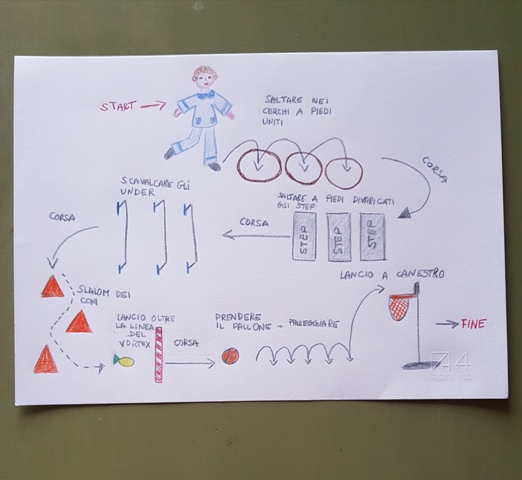 START
SALTARE NEI
CERCHI A PIEDI
UNITI
CORSA
SALTARE A PIEDI DIVARICATI
GLI STEP
STEP
STEP
STEP
CORSA
SCAVALCARE GLI
UNDER
CORSA
SLALOM DEI
CONI
LANCIO OLTRE
LA LINEA
DEL
VORTEX
CORSA
PRENDERE
IL PALLONE → PALLEGGIARE
LANCIO A CANESTRO
FINE